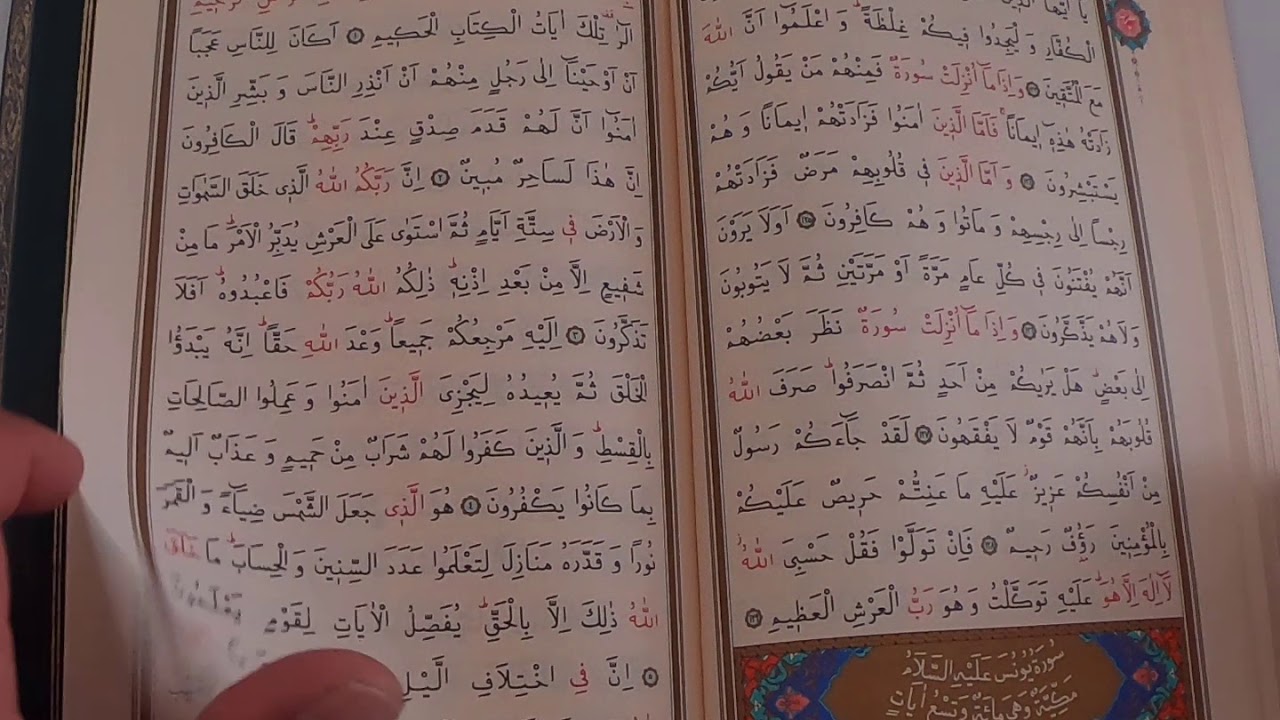 يَٓا اَيُّهَا الَّذ۪ينَ
الْكُفَّارِ وَ لْيَجِدُوا ف۪يكُمْ غِلْظَةًۜ وَ اعْلَمُٓوا اَنَّ اللّٰهَ
مَعَ الْمُتَّق۪ينَ وَ اِذَا مَٓا اُنْزِلَتْ سُورَةٌ فَمِنْهُمْ مَنْ يَقُولُ اَيُّكُمْ
زَادَتْهُ هٰذِه۪ٓ ا۪يمَاناًۚ فَاَمَّا الَّذ۪ينَ اٰمَنُوا فَزَادَتْهُمْ ا۪يمَاناً وَ هُمْ
يَسْتَبْشِرُونَ وَ اَمَّا الَّذ۪ينَ ف۪ي قُلُوبِهِمْ مَرَضٌ فَزَادَتْهُمْ
رِجْساً اِلٰى رِجْسِهِمْ وَ مَاتُوا وَ هُمْ كَافِرُونَ ١٢٥ اَوَلَا يَرَوْنَ
اَنَّهُمْ يُفْتَنُونَ ف۪ي كُلِّ عَامٍ مَرَّةً اَوْ مَرَّتَيْنِ ثُمَّ لَا يَتُوبُونَ
وَلَا هُمْ يَذَّكَّرُونَ وَ اِذَا مَٓا اُنْزِلَتْ سُورَةٌ نَظَرَ بَعْضُهُمْ
اِلٰى بَعْضٍۜ هَلْ يَرٰيكُمْ مِنْ اَحَدٍ ثُمَّ انْصَرَفُواۜ صَرَفَ اللّٰهُ
قُلُوبَهُمْ بِاَنَّهُمْ قَوْمٌ لَا يَفْقَهُونَ لَقَدْ جَٓاءَكُمْ رَسُولٌ
مِنْ اَنْفُسِكُمْ عَز۪يزٌ عَلَيْهِ مَا عَنِتُّمْ حَر۪يصٌ عَلَيْكُمْ
بِالْمُؤْمِن۪ينَ رَؤُ۫فٌ رَح۪يمٌ فَاِنْ تَوَلَّوْا فَقُلْ حَسْبِيَ اللّٰهُۘ
لَٓا اِلٰهَ اِلَّا هُوَۜ عَلَيْهِ تَوَكَّلْتُ وَ هُوَ رَبُّ الْعَرْشِ الْعَظ۪يمِ
سُورَةُ يُونُسَ عَلَيْهِ السَّلَامُ
مَكِّيَّةٌ وَهِيَ مِائَةٌ وَتِسْعُ اٰيَاتٍ
الٓرٰ۠ تِلْكَ اٰيَاتُ الْكِتَابِ الْحَك۪يمِ ١ اَكَانَ لِلنَّاسِ عَجَباً
اَنْ اَوْحَيْنَٓا اِلٰى رَجُلٍ مِنْهُمْ اَنْ اَنْذِرِ النَّاسَ وَ بَشِّرِ الَّذ۪ينَ
اٰمَنُٓوا اَنَّ لَهُمْ قَدَمَ صِدْقٍ عِنْدَ رَبِّهِمْۜ قَالَ الْكَافِرُونَ
اِنَّ هٰذَا لَسَاحِرٌ مُب۪ينٌ ٢ اِنَّ رَبَّكُمُ اللّٰهُ الَّذ۪ي خَلَقَ السَّمٰوَاتِ
وَ الْاَرْضَ ف۪ي سِتَّةِ اَيَّامٍ ثُمَّ اسْتَوٰى عَلَى الْعَرْشِ يُدَبِّرُ الْاَمْرَۜ مَا مِنْ
شَف۪يعٍ اِلَّا مِنْ بَعْدِ اِذْنِه۪ۜ ذٰلِكُمُ اللّٰهُ رَبُّكُمْ فَاعْبُدُوهُۜ اَفَلَا
تَذَكَّرُونَ ٣ اِلَيْهِ مَرْجِعُكُمْ جَم۪يعاًۜ وَعْدَ اللّٰهِ حَقًّاۜ اِنَّهُ يَبْدَؤُا
الْخَلْقَ ثُمَّ يُع۪يدُهُ لِيَجْزِيَ الَّذ۪ينَ اٰمَنُوا وَ عَمِلُوا الصَّالِحَاتِ
بِالْقِسْطِۜ وَ الَّذ۪ينَ كَفَرُوا لَهُمْ شَرَابٌ مِنْ حَم۪يمٍ وَ عَذَابٌ اَل۪يمٌ
بِمَا كَانُوا يَكْفُرُونَ ٤ هُوَ الَّذ۪ي جَعَلَ الشَّمْسَ ضِيَٓاءً وَ الْقَمَرَ
نُوراً وَ قَدَّرَهُ مَنَازِلَ لِتَعْلَمُوا عَدَدَ السِّن۪ينَ وَ الْحِسَابَۜ مَا خَلَقَ
اللّٰهُ ذٰلِكَ اِلَّا بِالْحَقِّۚ يُفَصِّلُ الْاٰيَاتِ لِقَوْمٍ يَعْلَمُونَ
٥ اِنَّ فِي اخْتِلَافِ الَّيْلِ